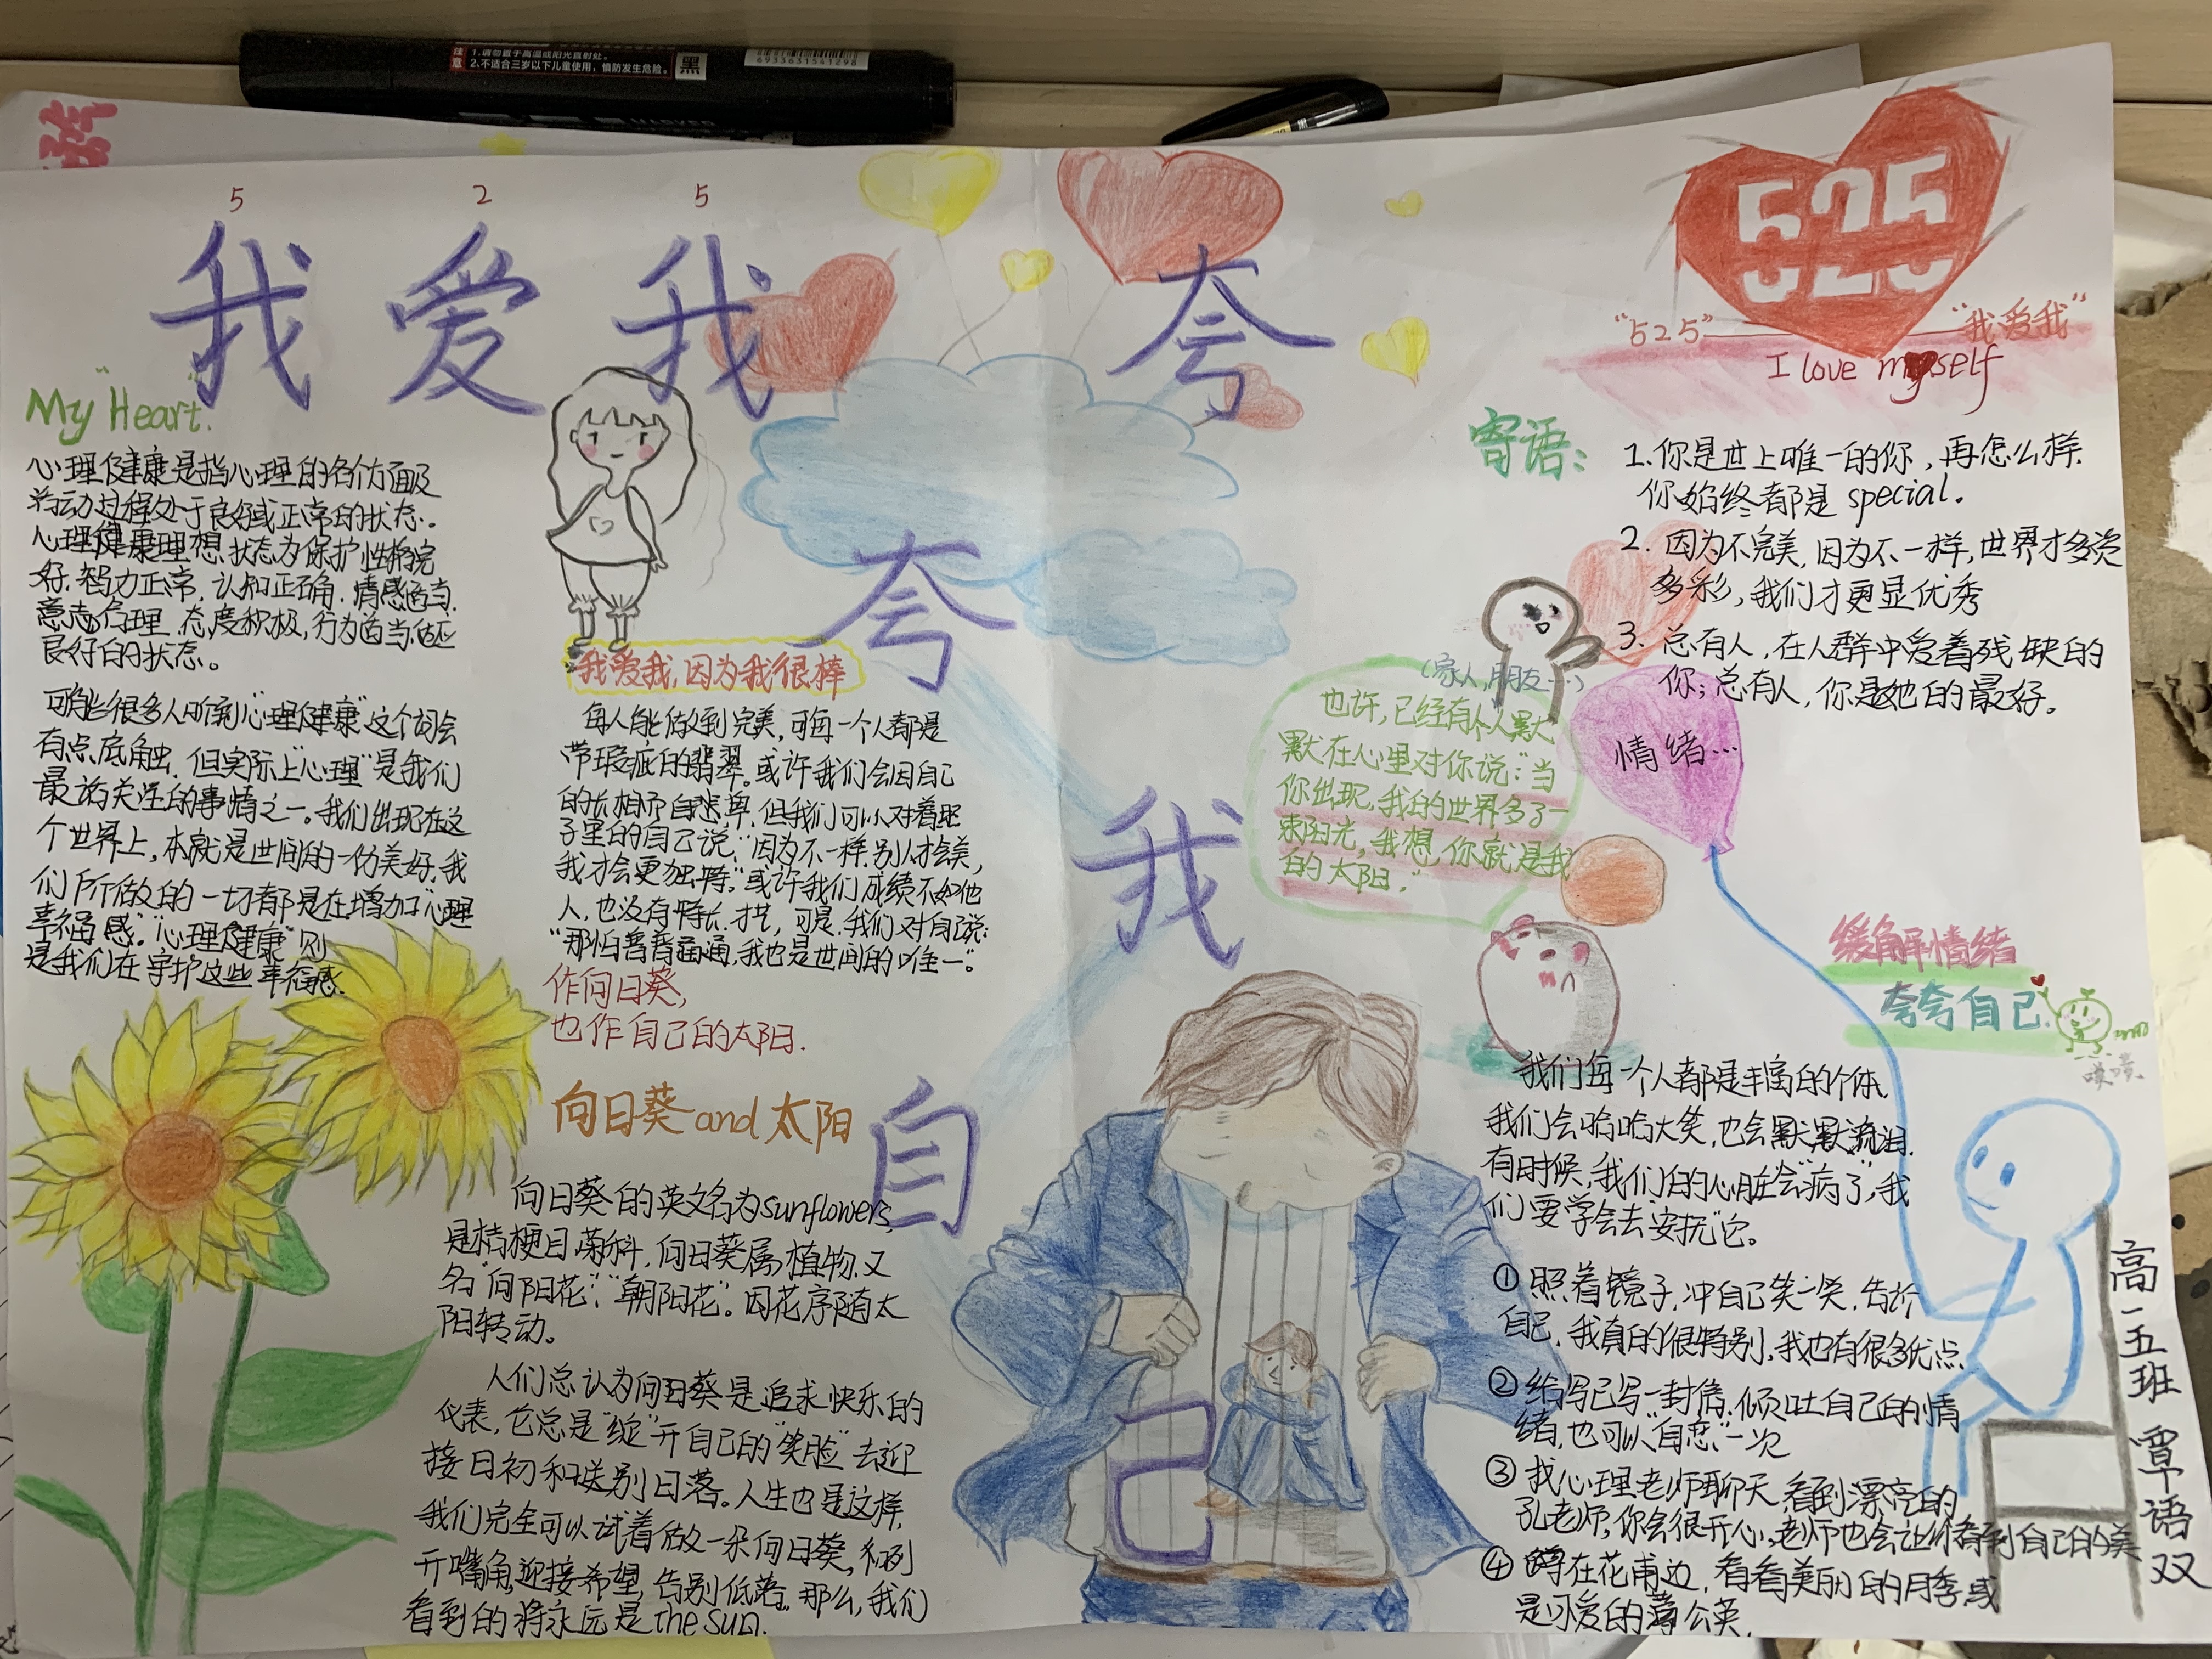 注意
1.请勿置于高温或阳光直射处。
2.不适合三岁以下儿童使用，慎防发生危险。
黑
6933631541298
MARKER
5 2 5
我爱我
夸
夸
我
自
己
525
"525"——"我爱我"
I love myself
My "Heart".
心理健康是指心理的各个方面及
活动过程处于良好或正常的状态。
心理健康理想状态为保护性格完
好,智力正常,认知正确,情感适当,
意志合理,态度积极,行为适当,适应
良好的状态。
可能很多人听到"心理健康"这个词会
有点底触,但实际上"心理"是我们
最该关注的事情之一。我们出现在这
个世界上,本就是世间的一份美好,我
们所做的一切都是在增加"心理
幸福感"。"心理健康"则
是我们在守护这些幸福感.
我爱我,因为我很棒
每人能做到完美,可每一个人都是
带瑕疵的翡翠。或许我们会因自己
的长相而自悲卑,但我们可以对着照
子里的自己说:"因为不一样,别人才会美,
我才会更独特。"或许我们成绩不如他
人,也没有特长、才艺,可是,我们对自己说:
"那怕普普通通,我也是世间的唯一"。
作向日葵,
也作自己的太阳.
向日葵and太阳
向日葵的英文名为sunflowers,
是桔梗目,菊科,向日葵属植物,又
名"向阳花"、"朝阳花"。因花序随太
阳转动。
人们总认为向日葵是追求快乐的
代表,它总是"绽"开自己的"笑脸"去迎
接日初和送别日落。人生也是这样,
我们完全可以试着做一朵向日葵,
开嘴角,迎接希望,告别低落。那么,我们
看到的将永远是the sun.
寄语:
1.你是世上唯一的你,再怎么样,
你始终都是special.
2.因为不完美,因为不一样,世界才多姿
多彩,我们才更显优秀
3.总有人,在人群中爱着残缺的
你;总有人,你是她的最好。
(家人,朋友…)
也许,已经有个人默
默在心里对你说:"当
你出现,我的世界多了一
束阳光,我想,你就是我
的太阳."
情绪…
缓解情绪
夸夸自己
我们每一个人都是丰富的个体,
我们会哈哈大笑,也会默默流泪.
有时候,我们的心脏会"病了",我
们要学会去"安抚"它。
①照着镜子,冲自己笑一笑,告诉
自己,我真的很特别,我也有很多优点.
②给自己写一封信,倾吐自己的情
绪,也可以"自恋"一次
③找心理老师聊天,看到漂亮的
孔老师,你会很开心,老师也会让你看到自己的美
④蹲在花甫边,看看美丽的月季,或
是可爱的蒲公英.
高一五班 覃语双